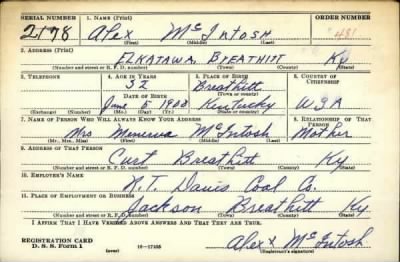 SERIAL NUMBER 1. NAME (Print) ORDER NUMBER
2178 Alex McIntosh 481
(First) (Middle) (Last)
2. ADDRESS (Print)
Elkatawa, Breathitt Ky
(Number and street or R. F. D. number) (Town) (County) (State)
3. TELEPHONE 4. AGE IN YEARS 5. PLACE OF BIRTH 6. COUNTRY OF CITIZENSHIP
32 Breathitt
DATE OF BIRTH (Town or county)
June 5 1908 Kentucky USA
(Exchange) (Number) (Mo.) (Day) (Yr.) (State or country)
7. NAME OF PERSON WHO WILL ALWAYS KNOW YOUR ADDRESS 8. RELATIONSHIP OF THAT PERSON
Mrs Menerva McIntosh Mother
(Mr., Mrs., Miss) (First) (Middle) (Last)
9. ADDRESS OF THAT PERSON
Breathitt Ky
(Number and street or R. F. D. number) (Town) (County) (State)
10. EMPLOYER'S NAME
Davis Coal Co.
11. PLACE OF EMPLOYMENT OR BUSINESS
Jackson Breathitt Ky
(Number and street or R. F. D. number) (Town) (County) (State)
I AFFIRM THAT I HAVE VERIFIED ABOVE ANSWERS AND THAT THEY ARE TRUE.
REGISTRATION CARD
D. S. S. Form 1 (over) 16-17105 Alex McIntosh
(Registrant's signature)